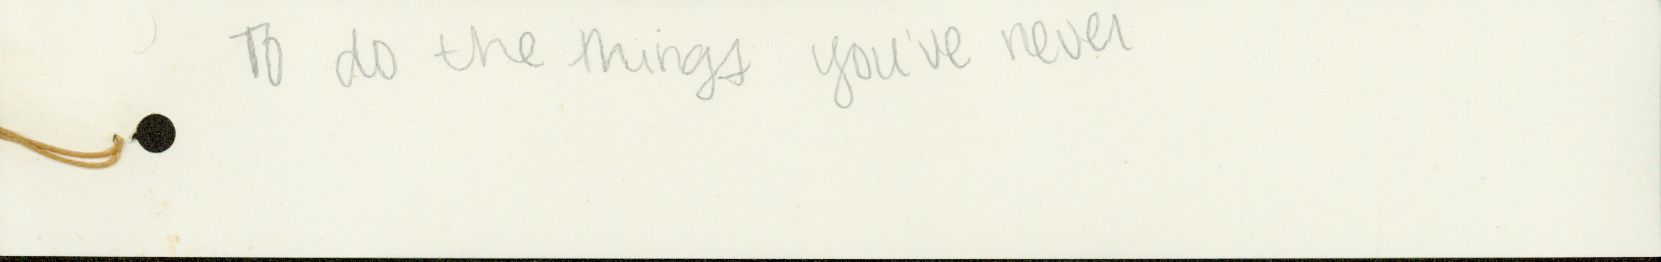 To do the things you've never